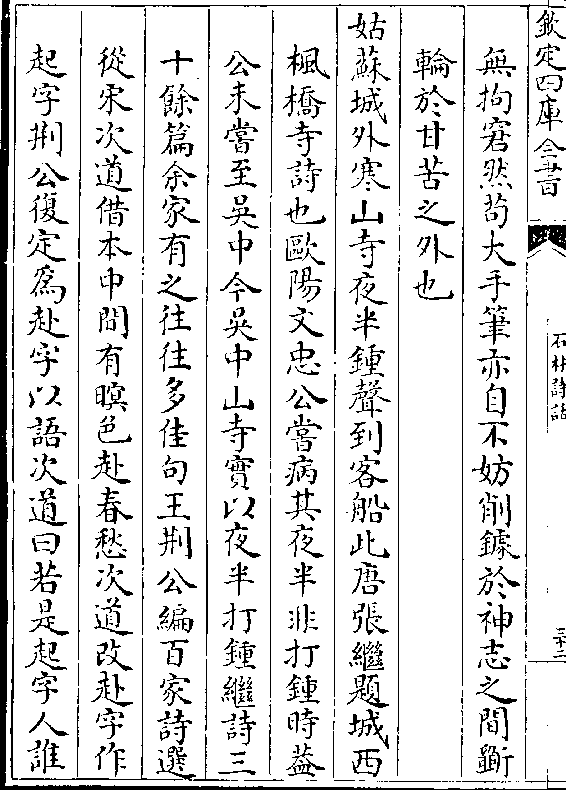 欽定四庫全書
石林詩話
三十三
無拘窘然苟大手筆亦自不妨削鐻於神志之間斵
輪於甘苦之外也
姑蘇城外寒山寺夜半鍾聲到客船此唐張繼題城西
楓橋寺詩也歐陽文忠公嘗病其夜半非打鍾時葢
公未嘗至吳中今吳中山寺實以夜半打鍾繼詩三
十餘篇余家有之往往多佳句王荆公編百家詩選
從宋次道借本中間有暝色赴春愁次道改赴字作
起字荆公復定爲赴字以語次道曰若是起字人誰